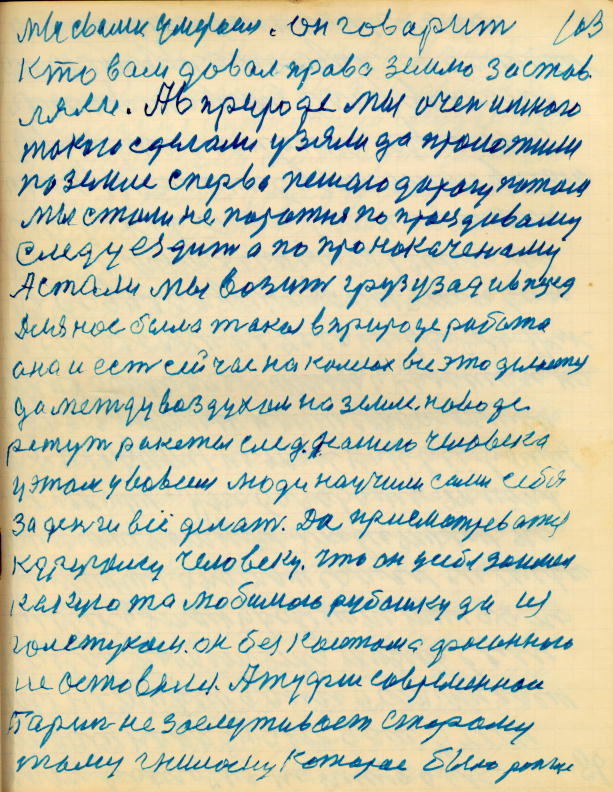 мы свами умерали. он говарит 103
Кто вам довал права землю застав.
ляли. А в природе мы очен много
такого сделали узяли да проложили
по земле сперва пешаю дарогу потом
мы стали не поротня по проездоваму
следу ездит а по пронокаченаму
А стали мы возит грузу взад ивперед
для нас была такая в природе работа
ана и ест сейчас на колесах все это делается
да между воздухам на земле. по воде.
ракеты след. нашего человека
у этом у во всем люди научили сами себя
За денги всё делат. Да присматреватся
к другому человеку. что он себя
какую та любимаю рубашку да из
голстухом. он без костюма
не оставялся. А туфли савременнаи
Парин не заслуживает старому
таму гнилому которае было